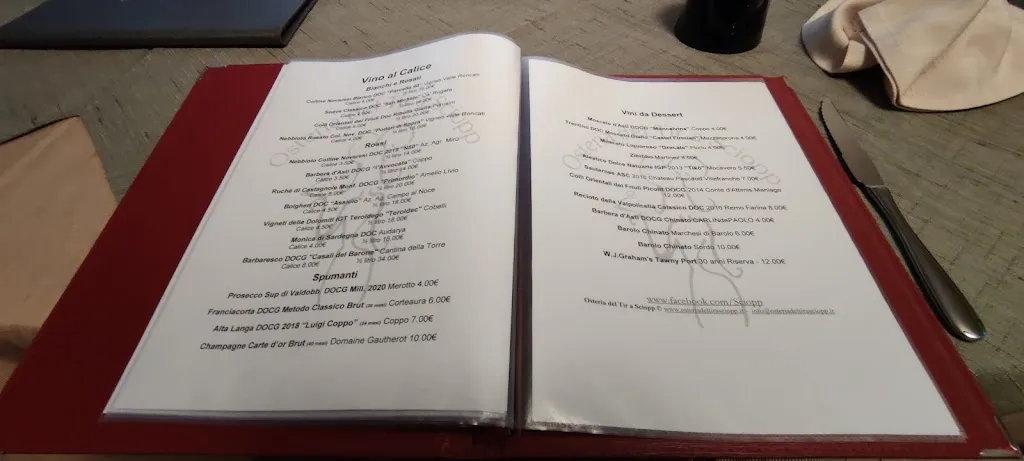 Vino al Calice
Bianchi e Rosati
Colline Novaresi Bianco DOC Vigneti Valle Roncati
Calice 4.00€ ½ litro
Soave Classico DOC "San Michele" Ca' Rugate
Calice ½ litro
Colli Orientali del Friuli Doc Ribolla Gialla
Calice ½ litro
Nebbiolo Rosato Col. Nov. DOC Vigneti Valle Roncati
Calice ½ litro
Rossi
Nebbiolo Colline Novaresi DOC 2019 Az. Agr. Miro
Calice 3.50€ ½ litro 14.00€
Barbera d'Asti DOCG "l'Avvocata" Coppo
Calice 3.50€ ½ litro 14.00€
Ruchè di Castagnole Monf. DOCG "Primordio" Amelio Livio
Calice 5.00€ ½ litro 20.00€
Bolgheri DOC "Assiolo" Az. Ag. Campo al Noce
Calice 4.50€ ½ litro 18.00€
Vigneti delle Dolomiti IGT Teroldego "Teroldec" Cobelli
Calice 4.50€ ½ litro 18.00€
Monica di Sardegna DOC Audarya
Calice 4.00€ ½ litro 15.00€
Barbaresco DOCG "Casali del Barone" Cantina della Torre
Calice 8.00€ ½ litro 34.00€
Spumanti
Prosecco Sup di Valdobb. DOCG Mill. 2020 Merotto 4.00€
Franciacorta DOCG Metodo Classico Brut Corteaura 6.00€
Alta Langa DOCG 2018 "Luigi Coppo" Coppo 7.00€
Champagne Carte d'or Brut Domaine Gautherot 10.00€
Vini da Dessert
Moscato d'Asti DOCG "Moncalvina" Coppo 4.00€
Trentino DOC Moscato Giallo "Castel Firmian" Mezzacorona 4.00€
Moscato Liquoroso Florio 4.00€
Zibibbo Martinez
Aleatico Dolce Naturale IGP 2013 Mocavero 5.50€
Sauternes ABC 2016 Chateau Pascaud Villefranche 7.00€
Colli Orientali del Friuli Picolit DOCG 2014 Conte d'Attimis Maniago
12.00€
Recioto della Valpolicella Classico DOC 2016 Remo Farina 8.00€
Barbera d'Asti DOCG Chinato CARLINdePAOLO 4.00€
Barolo Chinato Marchesi di Barolo 6.00€
Barolo Chinato Sordo 10.00€
W.J.Graham's Tawny Port 30 anni Riserva - 12.00€
www.facebook.com/Sciopp
Osteria del Tir a Sciopp © www.osteriadeltirasciopp.it - info@osteriadeltirasciopp.it